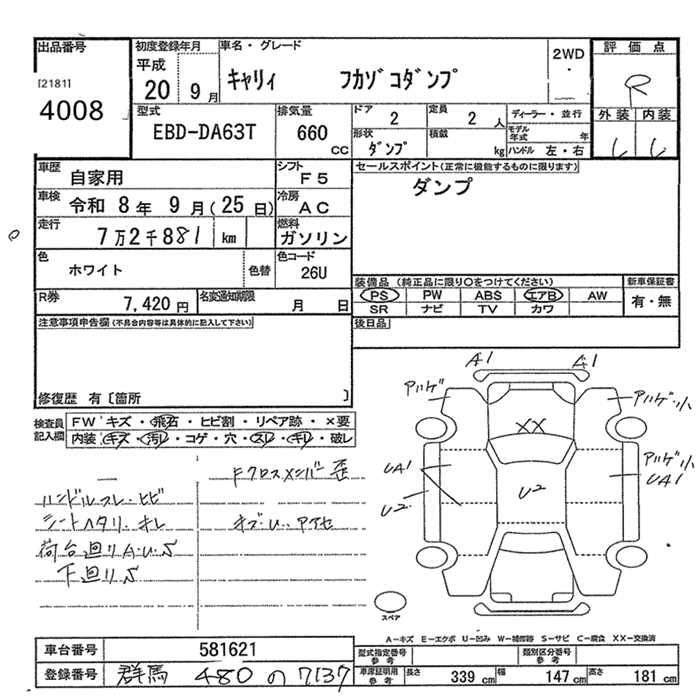 出品番号
[2181]
4008
初度登録年月
平成
20 9月
車名・グレード
キャリィ フカゾコダンプ
2WD
評価点
R
外装 内装
型式
EBD-DA63T
排気量
660 CC
ドア 2
定員 2人
形状 ダンプ
積載 kg
ディーラー・並行
モデル年式 年
ハンドル 左・右
車歴
自家用
シフト
F5
車検
令和 8年 9月(25日)
冷房
AC
走行
7万2千881 km
燃料
ガソリン
色
ホワイト
色替
色コード
26U
R券
7,420円
名変通知期限
月 日
セールスポイント(正常に機能するものに限ります)
ダンプ
装備品 (純正品に限り〇をつけてください)
PS PW ABS エアB AW
SR ナビ TV カワ
新車保証書
有・無
後日品
注意事項申告欄(不具合内容等は具体的に記入して下さい)
修復歴 有〔箇所 〕
検査員記入欄
FW キズ・飛石・ヒビ割・リペア跡・×要
内装 キズ・汚レ・コゲ・穴・スレ・キレ・破レ
Fクロスメンバー歪
ハンドルスレ・ヒビ
シートヘタリ・キレ
キズ・U・アアセ
荷台廻りA・U・S
下廻りS
A1 A1
アルゲ
アルゲ小
XX
UA1
U2
U2
アルゲ小
UA1
スペア
A-キズ E-エクボ U-凹み W-補修跡 S-サビ C-腐食 XX-交換済
車台番号
581621
登録番号
群馬 480 の 7137
型式指定番号
参考
類別区分番号
参考
車庫証明用
参考
長さ 339cm
幅 147cm
高さ 181cm